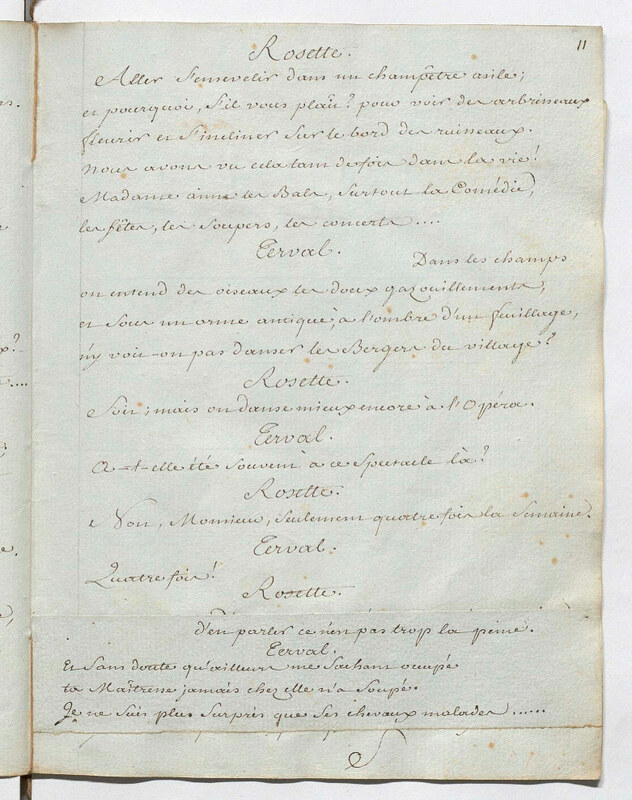 11
Rosette.
Aller s'ensevelir dans un champêtre asile;
et pourquoi, s'il vous plaît? pour voir des arbrisseaux
fleurir et s'incliner sur le bord des ruisseaux.
Nous avons vu cela tant de fois dans la vie!
Madame aime les Bals, surtout la Comédie,
les fêtes, les soupers, les concerts ....
Terval.
Dans les champs
on entend des oiseaux les doux gazouillements;
et sous un orme antique, à l'ombre d'un feuillage,
n'y voit-on pas danser les Bergers du village?
Rosette.
Soit; mais on danse mieux encore à l'Opéra.
Terval.
A-t-elle été souvent à ce spectacle là?
Rosette.
Non, Monsieur, seulement quatre fois la semaine.
Terval.
Quatre fois!
Rosette.
d'en parler ce n'en pas trop la peine.
Terval.
Et sans doute qu'ailleurs me sachant occupé
ta Maîtresse jamais chez elle n'a soupé.
Je ne suis plus surpris que ses chevaux malades ......